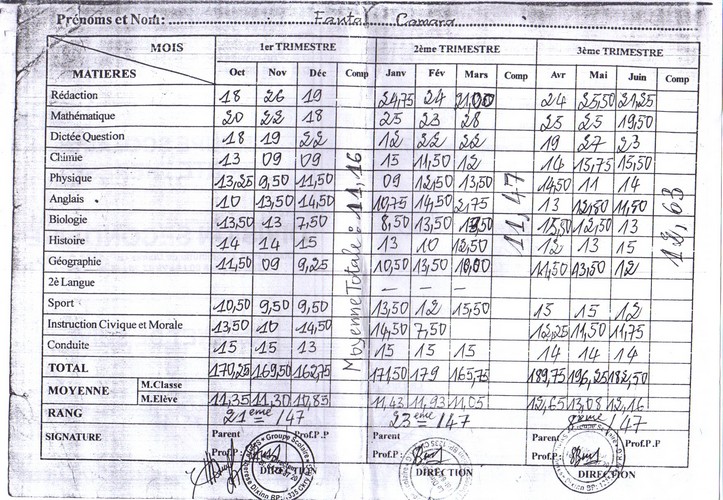 Prénoms et Nom: Fanta Camara
MOIS 1er TRIMESTRE 2ème TRIMESTRE 3ème TRIMESTRE
MATIERES Oct Nov Déc Comp Janv Fév Mars Comp Avr Mai Juin Comp
Rédaction 18 26 19 24,75 24 21,00 24 25,50 21,25
Mathématique 20 22 18 25 23 28 25 25 19,50
Dictée Question 18 19 22 12 22 22 19 27 23
Chimie 13 09 09 15 11,50 12 14 15,75 15,50
Physique 13,25 9,50 11,50 09 12,50 13,50 14,50 11 14
Anglais 10 13,50 14,50 10,75 14,50 2,75 13 12,50 11,50
Biologie 13,50 13 7,50 8,50 13,50 15,50 12,50 13
Histoire 14 14 15 13 10 12,50 12 13 15
Géographie 11,50 09 9,25 10,50 13,50 10,00 11,50 13,50 12
2è Langue — — —
Sport 10,50 9,50 9,50 13,50 12 15,50 15 15 12
Instruction Civique et Morale 13,50 10 14,50 14,50 7,50 12,25 11,50 11,75
Conduite 15 15 13 15 15 15 14 14 14
TOTAL 170,25 169,50 162,75 171,50 179 165,75 189,75 196,25 182,50
MOYENNE M.Classe
M.Elève 11,35 11,30 10,85 11,43 11,93 11,05 12,65 13,08 12,16
RANG 21eme /47 23eme /47 /47
Moyenne Totale : 11,16
11,47
12,63
SIGNATURE Parent Prof.P Parent Prof.P.P
Prof.P Prof.P
DIRECTION DIRECTION DIRECTION